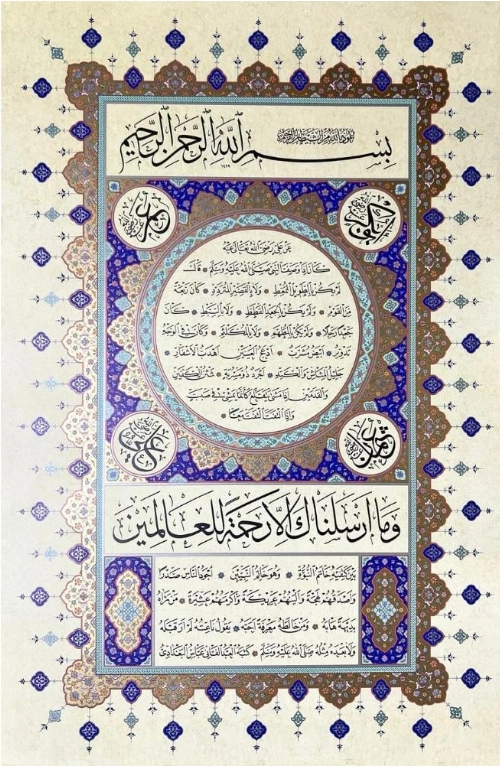 نعوذ بالله من الشيطان الرجيم
بِسْمِ اللَّهِ الرَّحْمٰنِ الرَّحِيمِ
١٤٢٩
عن علي رضي الله تعالى عنه
كان اذا وصف النبي صلى الله عليه وسلم قال
لم يكن بالطويل الممغط ولا بالقصير المتردد كان ربعة
من القوم ولم يكن بالجعد القطط ولا بالسبط كان
جعدا رجلا ولم يكن بالمطهم ولا بالمكلثم وكان في الوجه
تدوير ابيض مشرب ادعج العينين اهدب الاشفار
جليل المشاش والكتد اجرد ذو مسربة شثن الكفين
والقدمين اذا مشى يتقلع كانما يمشي في صبب
واذا التفت التفت معا
وما ارسلناك الا رحمة للعالمين
بين كتفيه خاتم النبوة وهو خاتم النبيين اجود الناس صدرا
واصدقهم لهجة والينهم عريكة واكرمهم عشيرة من رآه
بديهة هابه ومن خالطه معرفة احبه يقول ناعته لم ار قبله
ولا بعده مثله صلى الله عليه وسلم كتبه العبد الفاني عباس البغدادي